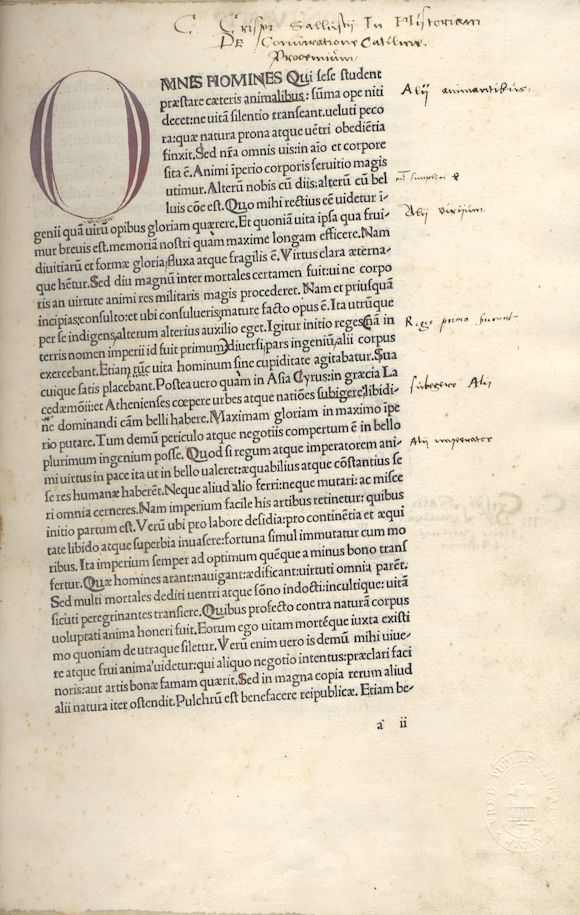 C. Crispi Sallustij In Historiam
DE Coniuratione Catilinæ.
Prooemium
OMNES HOMINES Qui sese student
præstare cæteris animalibus: sūma ope niti
decet: ne uitā silentio transeant. ueluti peco
ra: quæ natura prona atque uētri obediētia
finxit. Sed nr̄a omnis uis: in aīo et corpore
sita ē. Animi īperio corporis seruitio magis
utimur. Alterū nobis cū diis: alterū cū bel
luis cōe est. Quo mihi rectius eē uidetur ī-
genii quā uirū opibus gloriam quærere. Et quoniā uita ipsa qua frui-
mur breuis est. memoriā nostri quàm maxime longam efficere. Nam
diuitiarū et formæ gloria: fluxa atque fragilis ē. Virtus clara æterna-
que hētur. Sed diu magnū inter mortales certamen fuit: ui ne corpo
ris an uirtute animi res militaris magis procederet. Nam et priusquā
incipias: consulto: et ubi consulueris: mature facto opus ē. Ita utrūque
per se indigens: alterum alterius auxilio eget. Igitur initio reges: nā in
terris nomen imperii id fuit primum: diuersi: pars ingeniū, alii corpus
exercebant. Etiam nūc uita hominum sine cupiditate agitabatur. Sua
cuique satis placebant. Postea uero quàm in Asia Cyrus: in græcia La
cedæmōii: et Athenienses cœpere urbes atque natiōes subigere, libidi-
nē dominandi cām belli habere. Maximam gloriam in maximo īpe
rio putare. Tum demū periculo atque negotiis compertum ē in bello
plurimum ingenium posse. Quod si regum atque imperatorem ani-
mi uirtus in pace ita ut in bello ualeret: æquabilius atque cōstantius se
se res humanæ haberēt. Neque aliud alio ferri: neque mutari: ac misce
ri omnia cerneres. Nam imperium facile his artibus retinetur: quibus
initio partum est. Verū ubi pro labore desidia: pro continētia et æqui
tate libido atque superbia inuasere: fortuna simul immutatur cum mo
ribus. Ita imperium semper ad optimum quēque a minus bono trans
fertur. Quæ homines arant: nauigant: ædificant: uirtuti omnia parēt.
Sed multi mortales dediti uentri atque sōno indocti: incultique: uitā
sicuti peregrinantes transiere. Quibus profecto contra naturā corpus
uoluptati anima honeri fuit. Eorum ego uitam mortēque iuxta existi
mo quoniam de utraque siletur. Verū enim uero is demū mihi uiue-
re atque frui anima uidetur: qui aliquo negotio intentus: præclari faci
noris: aut artis bonæ famam quærit. Sed in magna copia rerum aliud
alii natura iter ostendit. Pulchrū est benefacere reipublicæ. Etiam be-
a ii
Alij animantibus.
Alij virium.
Reges primo fuerunt
subegere Alij
Alij imperator